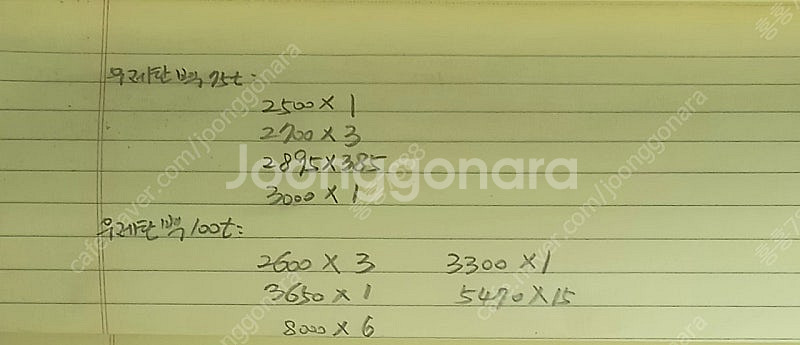 우레탄 벽 75t:
2500 × 1
2700 × 3
2895 × 385
3000 × 1
우레탄 벽 100t:
2600 × 3 3300 × 1
3650 × 1 5470 × 15
8000 × 6
Joonggonara
cafe.naver.com/joonggonara